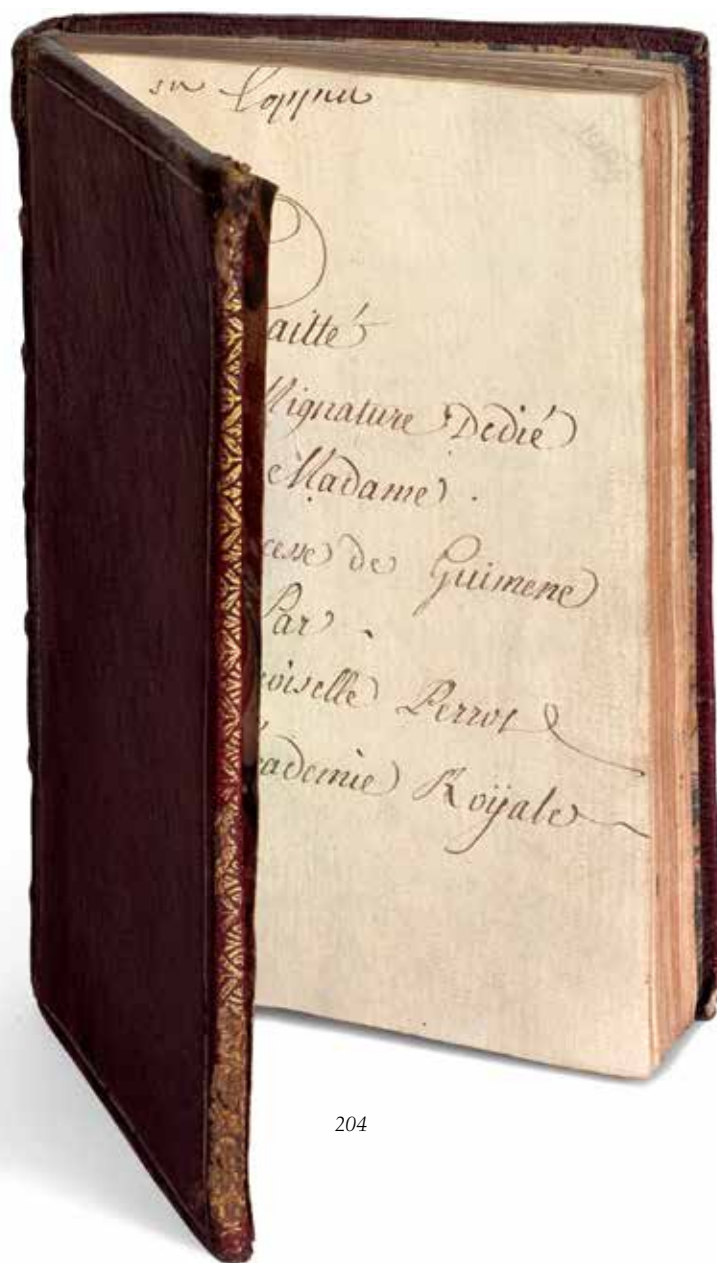 aitté
ignature Dedié
Madame .
cesse de Guimene
Par .
oiselle Perrot
cademie Royale
204